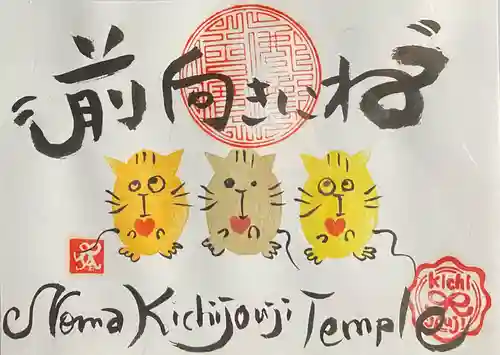 前向きにね
Noma Kichijouji Temple
Kichi
Jouji